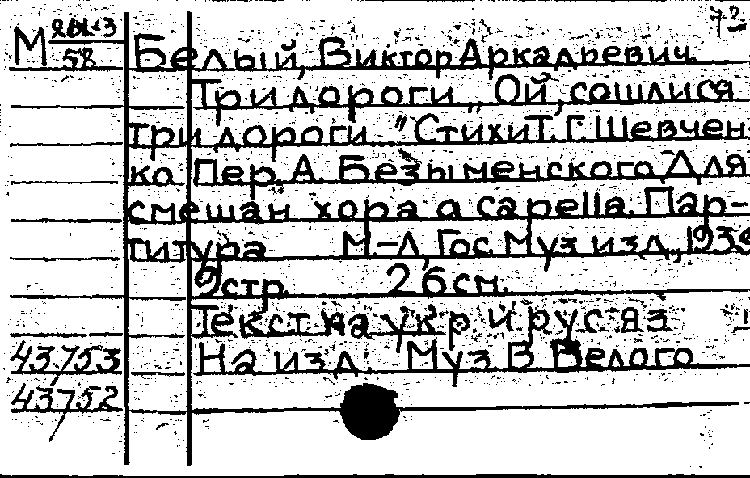 М 58 Белый, Виктор Аркадьевич.
Три дороги „ Ой, сошлися
три дороги " Стихи Т. Г. Шевчен
ко Пер. А. Безыменского Для
смешан хора a capella. Пар-
титура М.-Л., Гос. Муз изд., 1939
9 стр. 26 см.
Текст на укр и рус яз
43753 На изд. Муз В Белого
43752